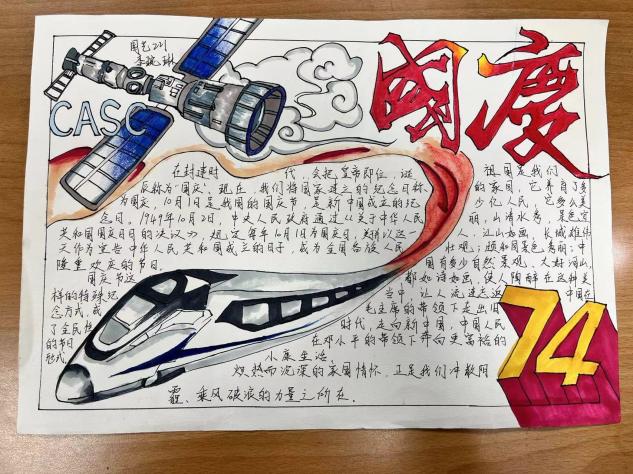 国艺221
李琬琳
CASC
國慶
在封建时代,会把皇帝即位、诞
辰称为“国庆”。现在,我们将国家建立的纪念日称
为国庆,10月1日是我国的国庆节,是新中国成立的纪
念日。1949年10月2日,中央人民政府通过《关于中华人民
共和国国庆日的决议》,规定每年10月1日为国庆日,并以这一
天作为宣告中华人民共和国成立的日子,成为全国各族人民
隆重欢庆的节日。
国庆节这
样的特殊纪
念方式,成
了全民
的节日
形式。
祖国是我们
的家园,它养育了多
少亿人民,它多么美
丽,山清水秀,景色宜
人,江山如画,长城雄伟
壮观;颐和园景色秀丽;中
国有多少自然景观,大好河山,
都如诗如画,使人陶醉在这种美
当中,让人流连忘返。中国在
毛主席的带领下走出旧
时代,走向新中国,中国人民
在邓小平的带领下奔向更富裕的
小康生活。
炽热而深深的家国情怀,正是我们冲散阴
霾、乘风破浪的力量之所在。
74